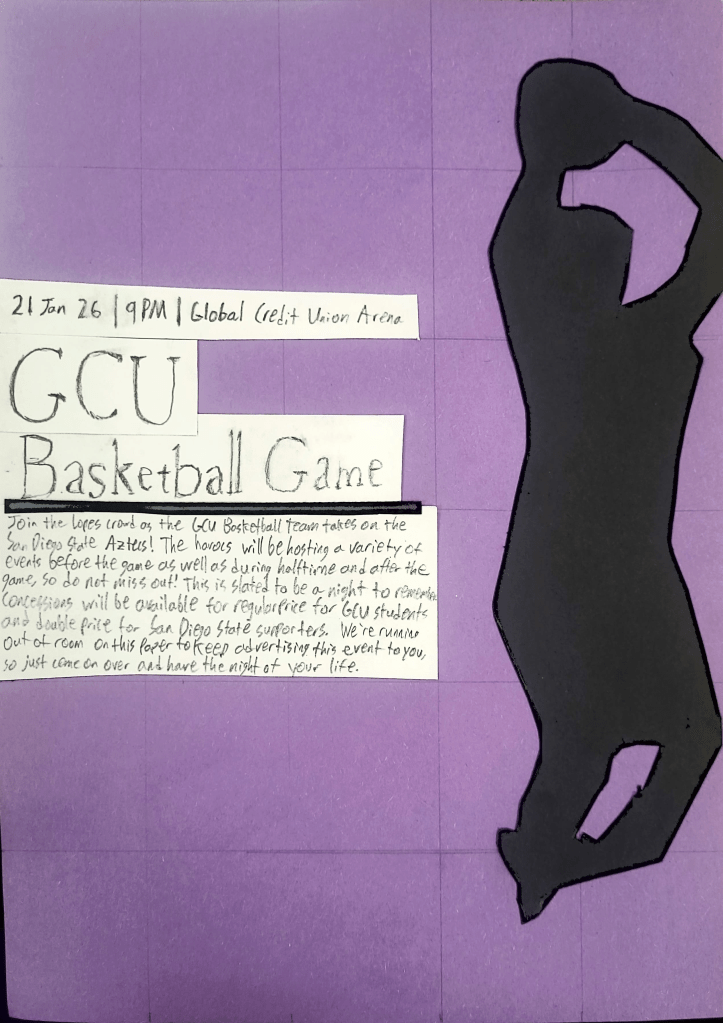 21 Jan 26 | 9PM | Global Credit Union Arena
GCU
Basketball Game
Join the Lopes crowd as the GCU Basketball Team takes on the
San Diego State Aztecs! The havocs will be hosting a variety of
events before the game as well as during halftime and after the
game, so do not miss out! This is slated to be a night to remember
Concessions will be available for regular price for GCU students
and double price for San Diego State supporters. We're running
out of room on this paper to keep advertising this event to you,
so just come on over and have the night of your life.